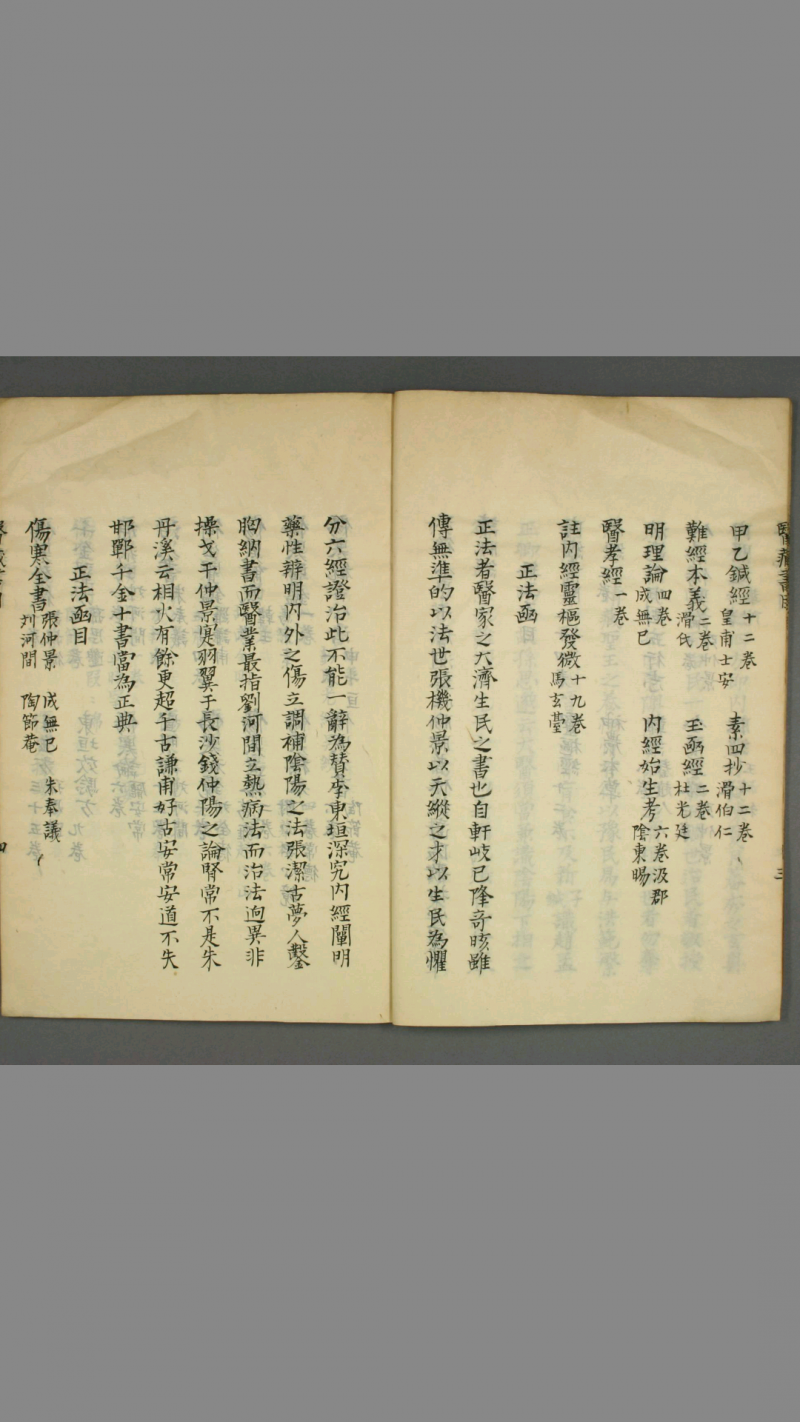 甲乙鍼經十二卷皇甫士安 素問抄十二卷滑伯仁
難經本義二卷滑氏 玉凾經二卷杜光廷
明理論四卷成無已 內經始生考六卷汲郡陰東暘
醫孝經一卷
註內經靈樞發微十九卷馬玄臺
正法凾
正法者醫家之大濟生民之書也自軒岐已降奇咳雖
傳無準的以法世張機仲景以天縱之才以生民為懼
分六經證治此不能一辭為賛李東垣深究内經闡明
藥性辨明内外之傷立調補陰陽之法張潔古夢人鑿
胸納書而醫業最指劉河間立熱病法而治法迥異非
操戈干仲景寔羽翼于長沙錢仲陽之論腎常不是朱
丹溪云相火有餘更超千古謙甫好古安常安道不失
邯鄲千金十書當為正典
正法凾目
傷寒全書張仲景 成無已 朱奉議 刘河間 陶節菴